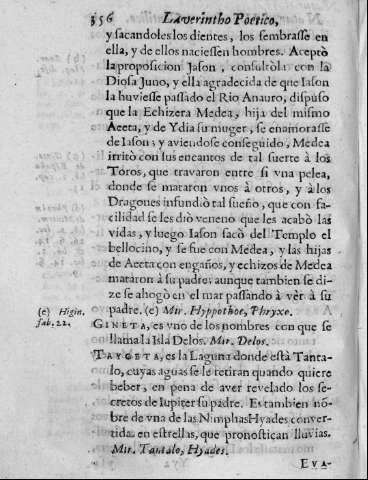 356 Laverintho Poetico,
y sacandoles los dientes, los sembrasse en
ella, y de ellos naciessen hombres. Aceptò
la proposicion Jason, consultòla con la
Diosa Juno, y ella agradecida de que Iason
la huviesse passado el Rio Anauro, dispuso
que la Echizera Medea, hija del mismo
Aeeta, y de Ydia su muger, se enamorasse
de Iason; y aviendose conseguido, Medea
irritò con sus encantos de tal suerte à los
Toros, que travaron entre si vna pelea,
donde se mataron vnos à otros, y à los
Dragones infundiò tal sueño, que con fa-
cilidad se les diò veneno que les acabò las
vidas, y luego Iason sacò del Templo el
bellocino, y se fue con Medea, y las hijas
de Aeeta con engaños, y echizos de Medea
mataron à su padre; aunque tambien se di-
ze se ahogò en el mar passando à vèr à su
padre. (e) Mir. Hyppothoe, Phryxo.
(e) Higin.
fab. 22.
GINETA, es vno de los nombres con que se
llama la Isla Delos. Mir. Delos.
TAYGETA, es la Laguna donde està Tanta-
lo, cuyas aguas se le retiran quando quiere
beber, en pena de aver revelado los se-
cretos de Iupiter su padre. Es tambien nõ-
bre de vna de las Nimphas Hyades conver-
tida en estrellas, que pronostican lluvias.
Mir. Tantalo, Hyades.
EVA-